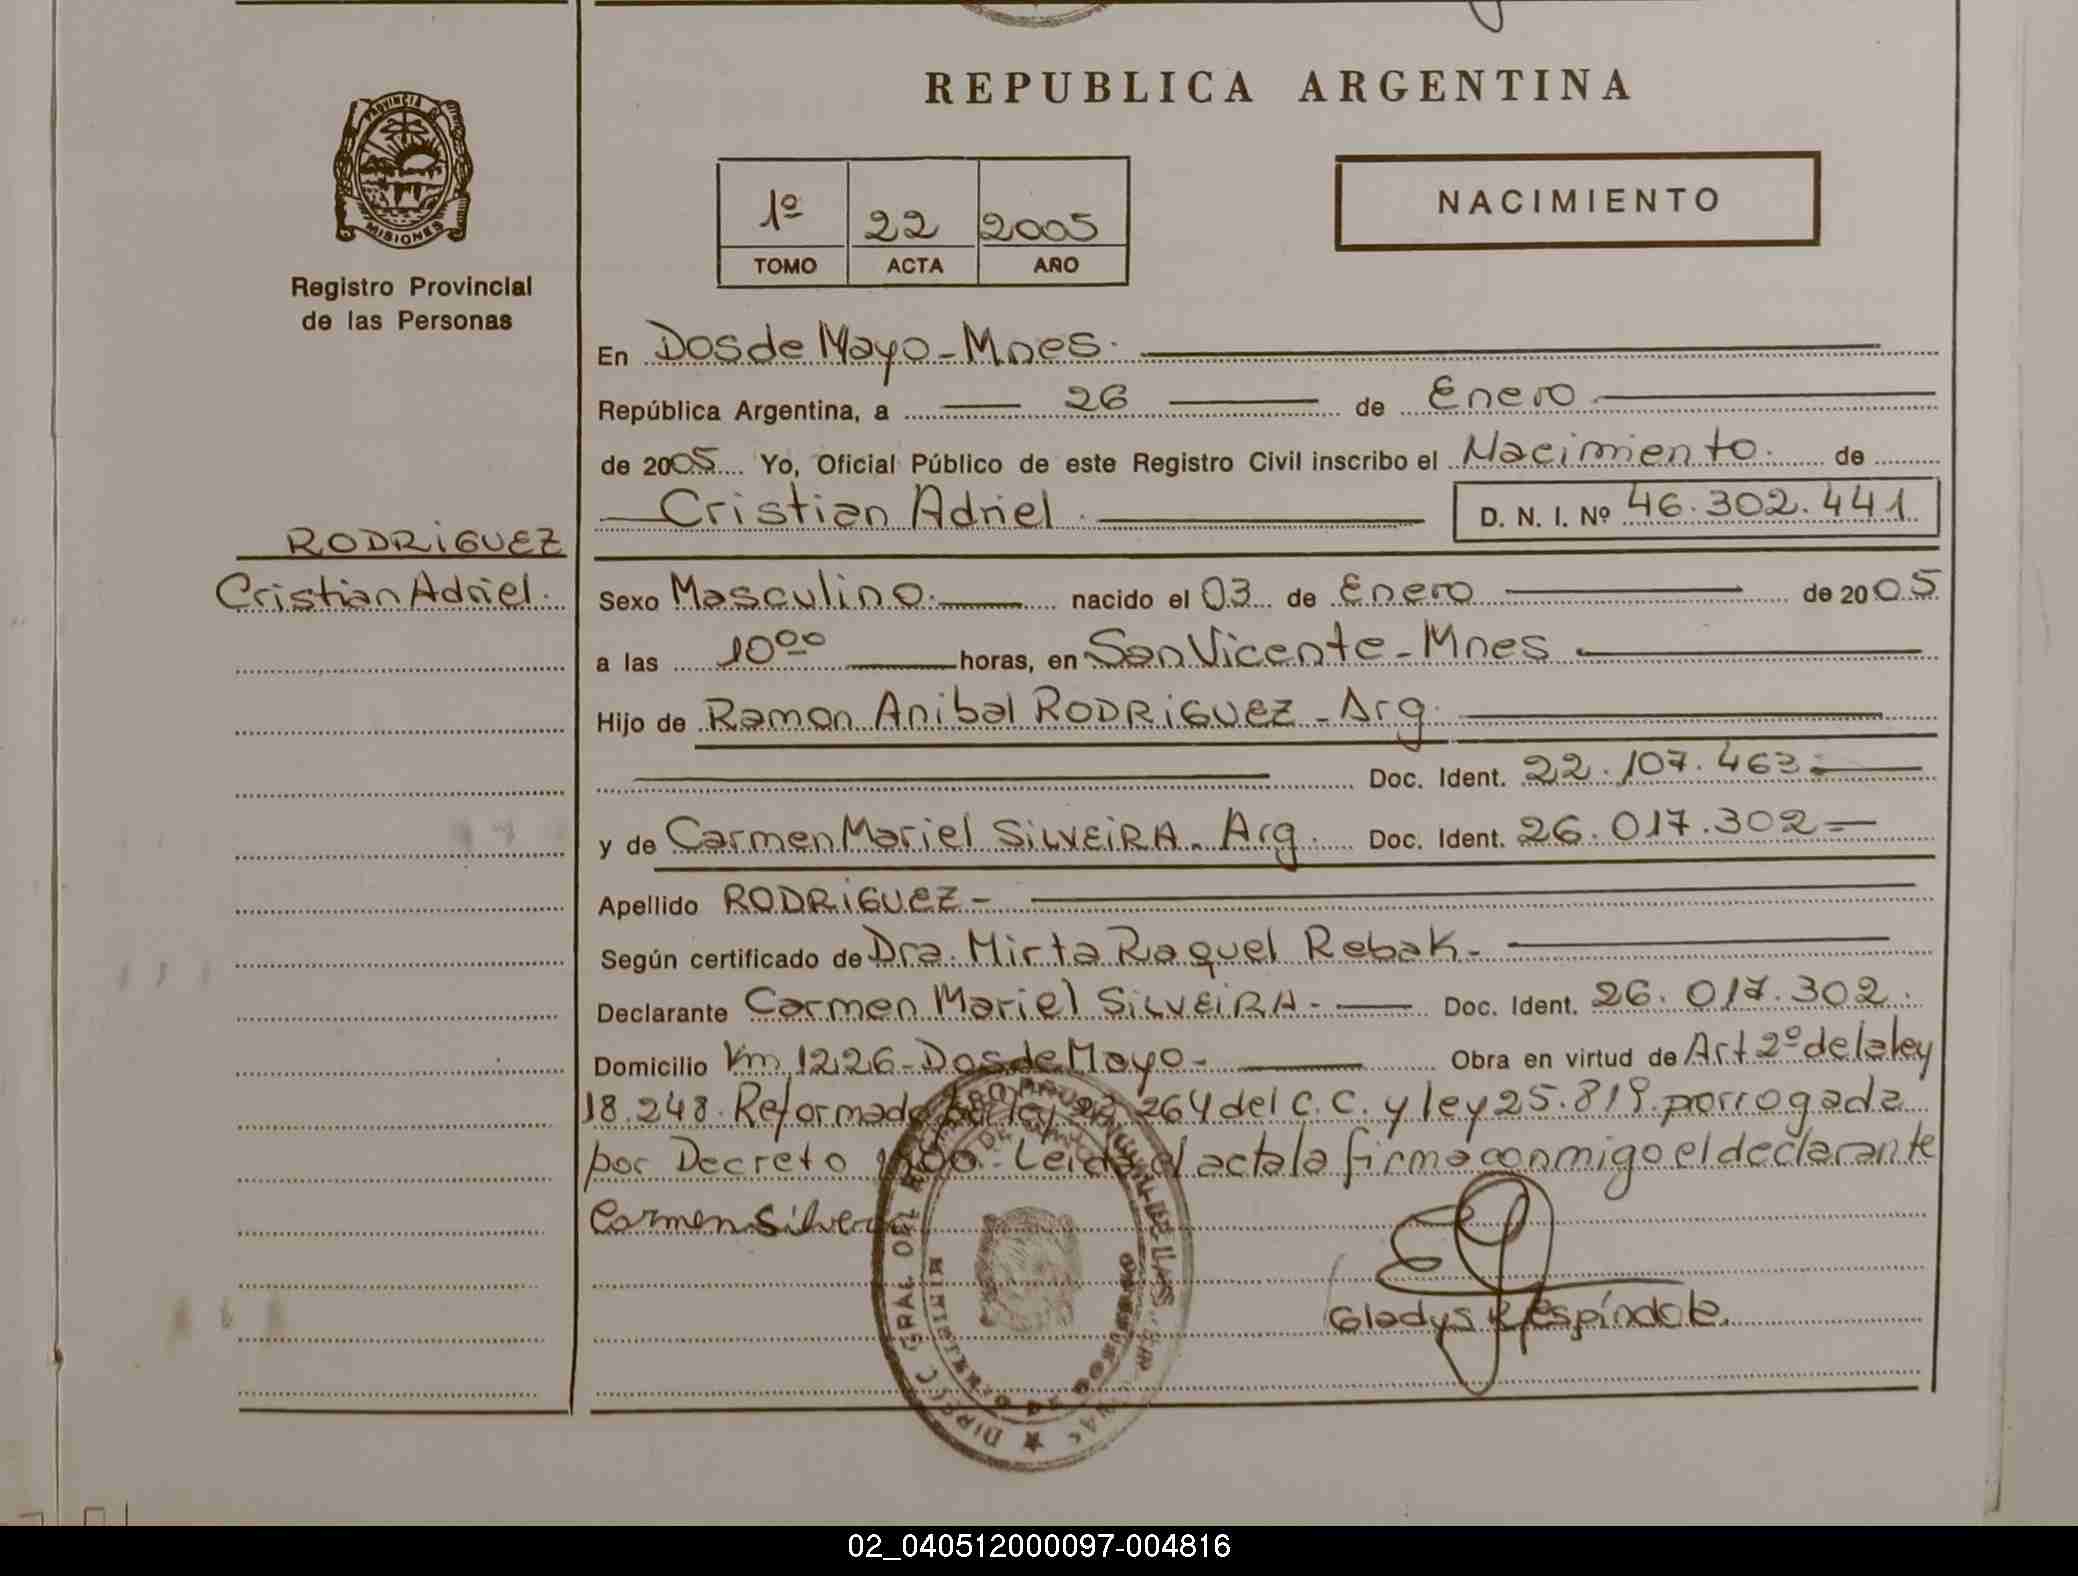 REPUBLICA ARGENTINA
PROVINCIA DE
MISIONES
Registro Provincial
de las Personas
1º 22 2005
TOMO ACTA AÑO
NACIMIENTO
En Dos de Mayo - Mnes.
República Argentina, a 26 de Enero
de 2005 Yo, Oficial Público de este Registro Civil inscribo el Nacimiento. de
Cristian Adriel. D. N. I. Nº 46.302.441.
RODRIGUEZ
Cristian Adriel.
Sexo Masculino. nacido el 03 de Enero de 2005
a las 10⁰⁰ horas, en San Vicente - Mnes
Hijo de Ramon Anibal RODRIGUEZ - Arg.
Doc. Ident. 22.107.463
y de Carmen Mariel SILVEIRA - Arg. Doc. Ident. 26.017.302
Apellido RODRIGUEZ -
Según certificado de Dra. Mirta Raquel Rebak -
Declarante Carmen Mariel SILVEIRA - Doc. Ident. 26.017.302.
Domicilio Km 1226 - Dos de Mayo - Obra en virtud de Art 2º de la ley
18.248. Reformado por ley 264 del C. C. y ley 25.819 prorrogada
por Decreto Leida el acta la firma conmigo el declarante
Carmen Silveira
Gladys Espíndola
DIRECC GRAL DEL
MINISTERIO
02_040512000097-004816